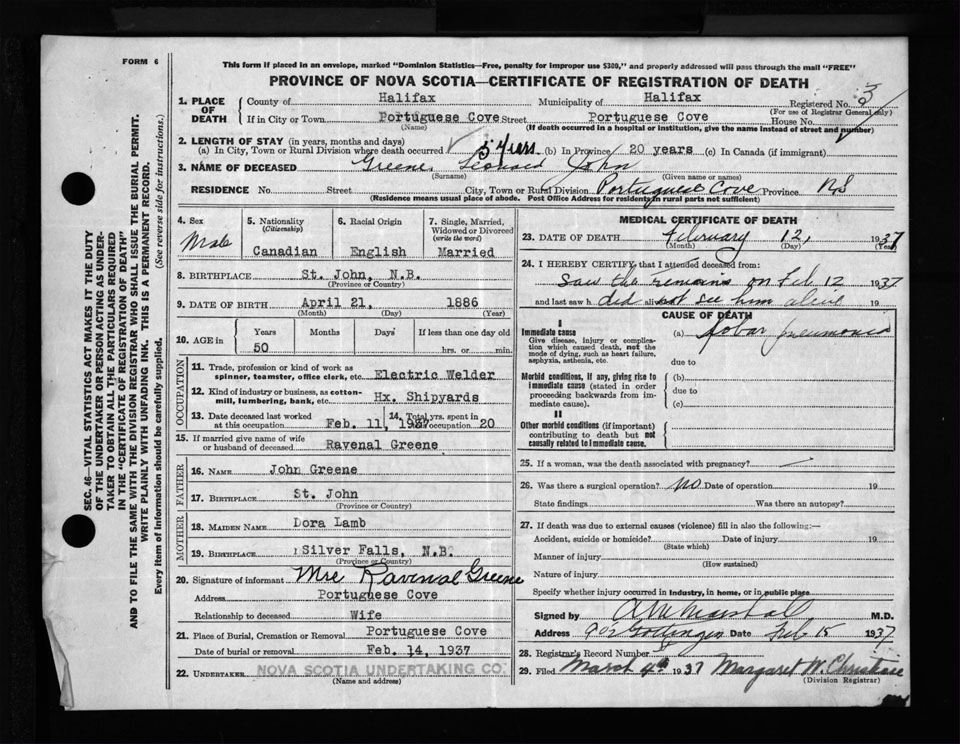 FORM 6
This form if placed in an envelope, marked "Dominion Statistics—Free, penalty for improper use $300," and properly addressed will pass through the mail "FREE"
PROVINCE OF NOVA SCOTIA—CERTIFICATE OF REGISTRATION OF DEATH
1. PLACE OF DEATH
County of Halifax Municipality of Halifax Registered No. 3
(For use of Registrar General only)
If in City or Town Portuguese Cove Street Portuguese Cove House No.
(Name) (If death occurred in a hospital or institution, give the name instead of street and number)
2. LENGTH OF STAY (in years, months and days)
(a) In City, Town or Rural Division where death occurred 5 yrs (b) In Province 20 years (c) In Canada (if immigrant)
3. NAME OF DECEASED Greene, Leonard John
(Surname) (Given name or names)
RESIDENCE No. Street City, Town or Rural Division Portuguese Cove Province NS
(Residence means usual place of abode. Post Office Address for residents in rural parts not sufficient)
4. Sex Male
5. Nationality (Citizenship) Canadian
6. Racial Origin English
7. Single, Married, Widowed or Divorced (write the word) Married
8. BIRTHPLACE St. John, N.B.
(Province or Country)
9. DATE OF BIRTH April 21, 1886
(Month) (Day) (Year)
10. AGE in Years Months Days If less than one day old
50 hrs. or min.
OCCUPATION
11. Trade, profession or kind of work as spinner, teamster, office clerk, etc. Electric Welder
12. Kind of industry or business, as cotton-mill, lumbering, bank, etc. Hx. Shipyards
13. Date deceased last worked at this occupation Feb. 11, 1937
14. Total yrs. spent in occupation 20
15. If married give name of wife or husband of deceased Ravenal Greene
FATHER
16. NAME John Greene
17. BIRTHPLACE St. John
(Province or Country)
MOTHER
18. MAIDEN NAME Dora Lamb
19. BIRTHPLACE Silver Falls, N.B.
(Province or Country)
20. Signature of informant Mrs Ravenal Greene
Address Portuguese Cove
Relationship to deceased Wife
21. Place of Burial, Cremation or Removal Portuguese Cove
Date of burial or removal Feb. 14, 1937
22. UNDERTAKER NOVA SCOTIA UNDERTAKING CO.
(Name and address)
MEDICAL CERTIFICATE OF DEATH
23. DATE OF DEATH February 12, 1937
(Month) (Day) (Year)
24. I HEREBY CERTIFY that I attended deceased from:
Saw the remains on Feb 12 1937
and last saw h did alive not see him alive 19
CAUSE OF DEATH
I
Immediate cause (a) Lobar pneumonia
Give disease, injury or complication which caused death, not the mode of dying, such as heart failure, asphyxia, asthenia, etc.
due to
Morbid conditions, if any, giving rise to immediate cause (stated in order proceeding backwards from immediate cause)
(b)
due to
(c)
II
Other morbid conditions (if important) contributing to death but not causally related to immediate cause.
25. If a woman, was the death associated with pregnancy?
26. Was there a surgical operation? No Date of operation 19
State findings Was there an autopsy?
27. If death was due to external causes (violence) fill in also the following:—
Accident, suicide or homicide? Date of injury 19
(State which)
Manner of injury
(How sustained)
Nature of injury
Specify whether injury occurred in industry, in home, or in public place
Signed by A M Marshall M.D.
Address 902 Gottingen Date Feb 15 1937
28. Registrar's Record Number
29. Filed March 4th 1937 Margaret W. Christie
(Division Registrar)
SEC. 46—VITAL STATISTICS ACT MAKES IT THE DUTY
OF THE UNDERTAKER OR PERSON ACTING AS UNDER-
TAKER TO OBTAIN ALL THE PARTICULARS REQUIRED
IN THE "CERTIFICATE OF REGISTRATION OF DEATH"
AND TO FILE THE SAME WITH THE DIVISION REGISTRAR WHO SHALL ISSUE THE BURIAL PERMIT.
WRITE PLAINLY WITH UNFADING INK. THIS IS A PERMANENT RECORD.
Every item of information should be carefully supplied. (See reverse side for instructions.)